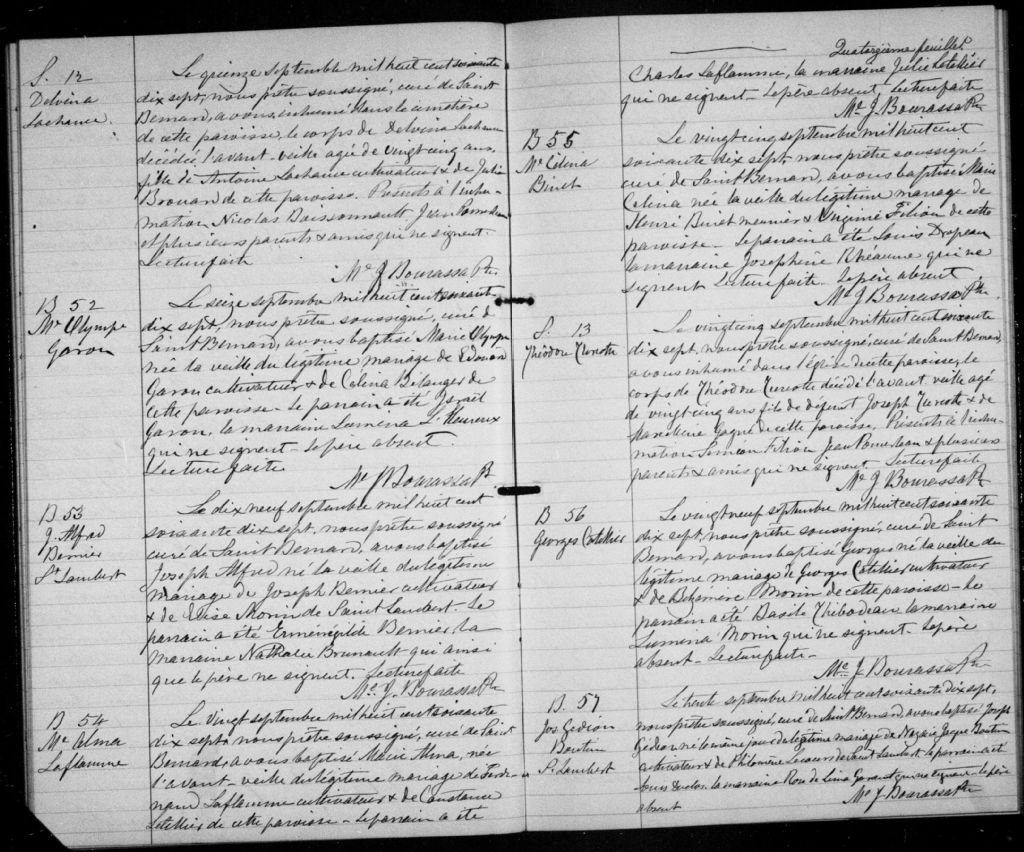 S. 12
Delvina
Lachance.
Le quinze Septembre mil huit cent soixante
dix sept, nous prêtre soussigné, curé de Saint
Bernard, avons inhumé dans le cimetière
de cette paroisse, le corps de Delvina Lachance
décédée l'avant-veille agée de vingt cinq ans,
fille de Antoine Lachance cultivateur & de Julie
Brouard de cette paroisse. Présents à l'inhu-
mation Nicolas Boissonnault Jean Pomerleau
et plusieurs parents & amis qui ne signent.
Lecture faite
Mc J Bourassa Ptr
B 52
Me Olympe
Garon
Le seize septembre mil huit cent soixante
dix sept, nous prêtre soussigné, curé de
Saint Bernard, avons baptisé Marie Olympe
née la veille du légitime mariage de Edouard
Garon cultivateur & de Celina Bélanger de
cette paroisse - Le parrain a été Israël
Garon, la marraine Lumina L'Heureux
qui ne signent - le père absent.
Lecture faite
Mc J Bourassa Pt
B 53
J. Alfred
Bernier
St Lambert
Le dix neuf septembre mil huit cent
soixante dix sept, nous prêtre soussigné
curé de Saint Bernard, avons baptisé
Joseph Alfred né la veille du légitime
mariage de Joseph Bernier cultivateur
& de Luise Morin de Saint Lambert - Le
parrain a été Erménégilde Bernier, la
marraine Nathalie Brunault qui ainsi
que le père ne signent. Lecture faite
Mc. J. Bourassa Pt
B 54
Me Alma
Laflamme
Le vingt septembre mil huit cent soixante
dix sept nous prêtre soussigné, curé de Saint
Bernard, avons baptisé Marie Alma, née
l'avant-veille du légitime mariage de Ferdi-
nand Laflamme cultivateur & de Constance
Letellier de cette paroisse - Le parrain a été
Quatorzième feuillet
Charles Laflamme, la marraine Julie Letellier
qui ne signent - Le père absent, Lecture faite
Mc. J. Bourassa Ptr
B 55
Me Célina
Binet
Le vingt cinq septembre mil huit cent
soixante dix sept nous prêtre soussigné
curé de Saint Bernard, avons baptisé Marie
Celina née la veille du légitime mariage de
Henri Binet meunier & Virginie Filion de cette
paroisse - Le parrain a été Louis Drapeau
la marraine Josephine Rheaume qui ne
signent Lecture faite. Le père absent
Mc J Bourassa Ptr.
S. 13
Théodore Turcotte
Le vingt cinq septembre mil huit cent soixante
dix sept, nous prêtre soussigné, curé de Saint Bernard,
avons inhumé dans l'église de cette paroisse, le
corps de Théodore Turcotte décédé l'avant veille agé
de vingt cinq ans fils de défunt Joseph Turcotte & de
Marcelline Gagné de cette paroisse. Présents à l'inhu-
mation Siméon Filion Jean Pomerleau & plusieurs
parents & amis qui ne signent Lecture faite
Mc J. Bourassa Pt
B 56
Georges Letellier
Le vingt neuf septembre mil huit cent soixante
dix sept, nous prêtre soussigné, curé de Saint
Bernard, avons baptisé Georges né la veille du
légitime mariage de Georges Letellier cultivateur
& de Morin de cette paroisse - Le
parrain a été Basile Thibodeau la marraine
Lumina Morin qui ne signent - Le père
absent - Lecture faite -
Mc. J. Bourassa Ptr
B. 57
Jos Gedéon
Boutin
St Lambert
Le trente septembre mil huit cent soixante dix sept,
nous prêtre soussigné, curé de Saint Bernard, avons baptisé Joseph
Gedéon né le même jour du légitime mariage de Nazaire Boutin
cultivateur & de Philomène Lecours de Saint Lambert le parrain a été
Louis la marraine Rose de Lima qui ne signent - le père
absent Mc J Bourassa Ptr